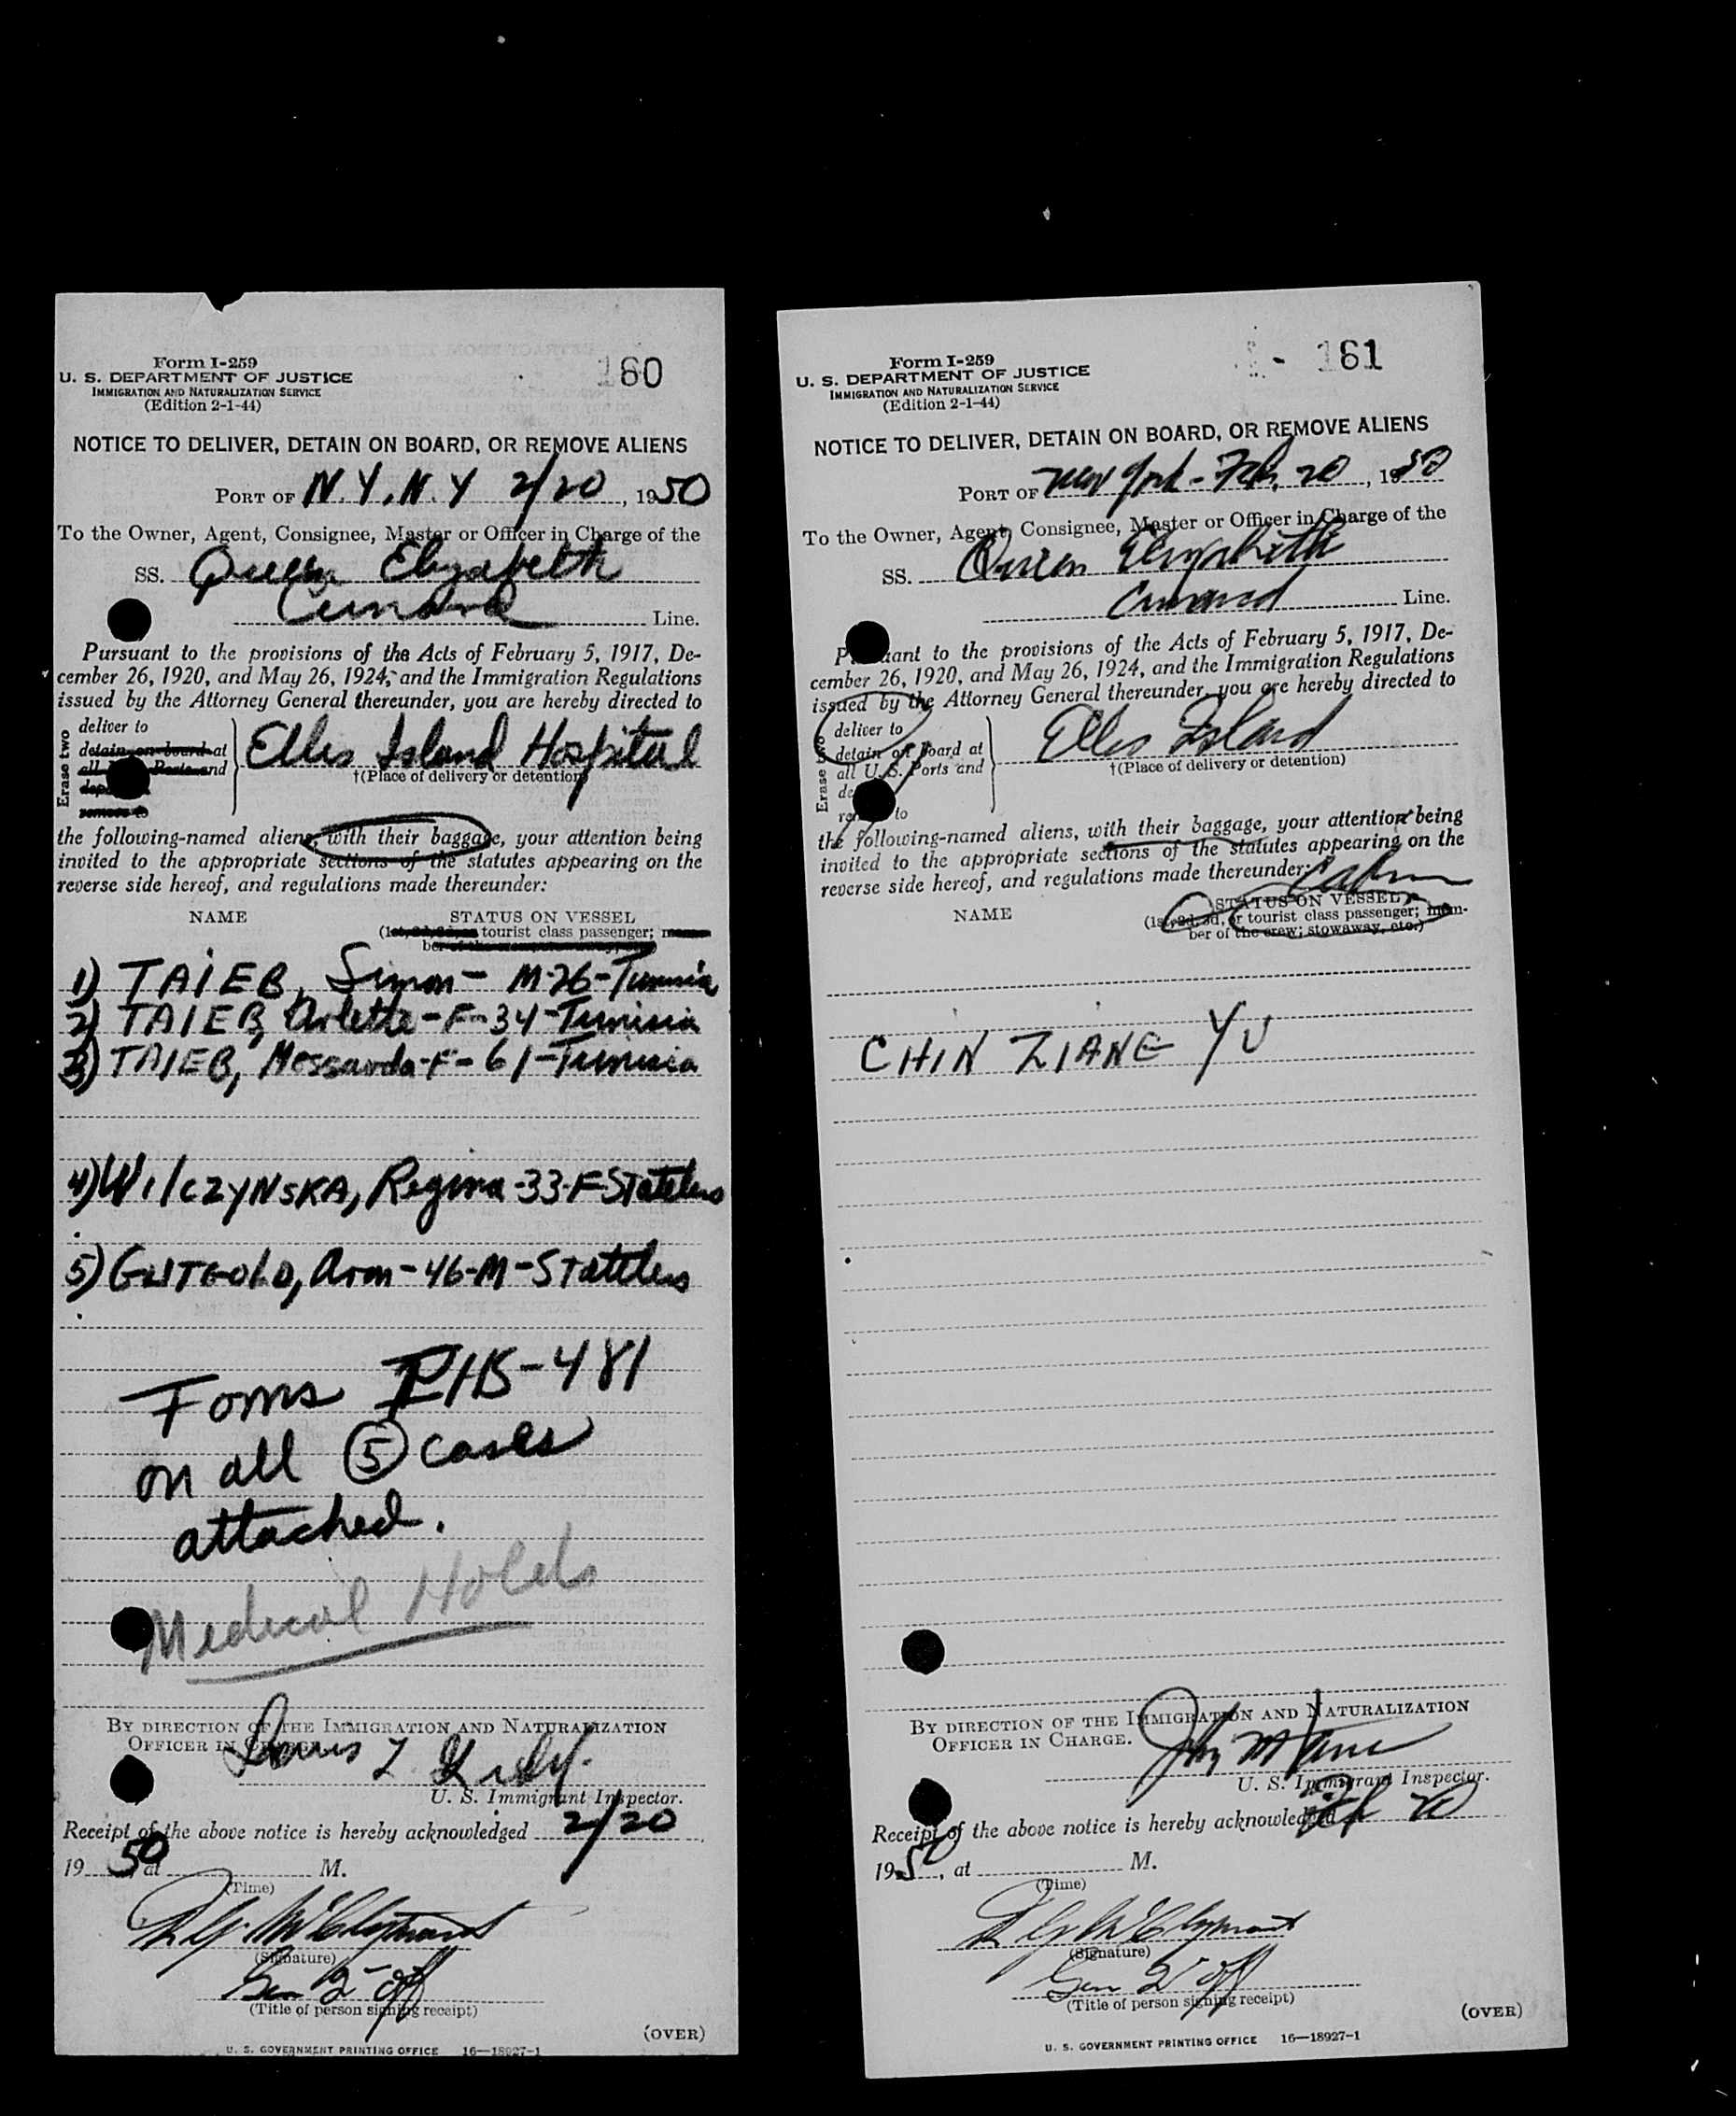 Form I-259
U. S. DEPARTMENT OF JUSTICE
IMMIGRATION AND NATURALIZATION SERVICE
(Edition 2-1-44)
160
NOTICE TO DELIVER, DETAIN ON BOARD, OR REMOVE ALIENS
PORT OF N.Y., N.Y 2/20, 1950
To the Owner, Agent, Consignee, Master or Officer in Charge of the
SS. Queen Elizabeth
Cunard Line.
Pursuant to the provisions of the Acts of February 5, 1917, De-
cember 26, 1920, and May 26, 1924, and the Immigration Regulations
issued by the Attorney General thereunder, you are hereby directed to
Erase two
deliver to
detain on board at
all Ports and
remove to
Ellis Island Hospital
†(Place of delivery or detention)
the following-named aliens, with their baggage, your attention being
invited to the appropriate sections of the statutes appearing on the
reverse side hereof, and regulations made thereunder:
NAME STATUS ON VESSEL
(1st, 2d, 3d, or tourist class passenger; mem-
ber of the crew; stowaway, etc.)
1) TAIEB, Simon - M-26-Tunisia
2) TAIEB, Arlette-F-34-Tunisia
3) TAIEB, Messaouda-F-61-Tunisia
4) WILCZYNSKA, Regina-33-F-Stateless
5) GUTGOLD, Aron-46-M-Stateless
Foms PHS-481
on all 5 cases
attached.
Medical Holds
BY DIRECTION OF THE IMMIGRATION AND NATURALIZATION
OFFICER IN CHARGE.
U. S. Immigrant Inspector.
Receipt of the above notice is hereby acknowledged 2/20
1950, at M.
(Time)
(Signature)
(Title of person signing receipt)
(OVER)
U. S. GOVERNMENT PRINTING OFFICE 16—18927-1
Form I-259
U. S. DEPARTMENT OF JUSTICE
IMMIGRATION AND NATURALIZATION SERVICE
(Edition 2-1-44)
- 161
NOTICE TO DELIVER, DETAIN ON BOARD, OR REMOVE ALIENS
PORT OF New York - Feb. 20, 1950
To the Owner, Agent, Consignee, Master or Officer in Charge of the
SS. Queen Elizabeth
Cunard Line.
Pursuant to the provisions of the Acts of February 5, 1917, De-
cember 26, 1920, and May 26, 1924, and the Immigration Regulations
issued by the Attorney General thereunder, you are hereby directed to
Erase two
deliver to
detain on board at
all U. S. Ports and
to
Ellis Island
†(Place of delivery or detention)
the following-named aliens, with their baggage, your attention being
invited to the appropriate sections of the statutes appearing on the
reverse side hereof, and regulations made thereunder:
Cabin
NAME STATUS ON VESSEL
(1st, 2d, 3d, or tourist class passenger; mem-
ber of the crew; stowaway, etc.)
CHIN ZIANE YU
BY DIRECTION OF THE IMMIGRATION AND NATURALIZATION
OFFICER IN CHARGE.
U. S. Immigrant Inspector.
Receipt of the above notice is hereby acknowledged Feb 20
1950, at M.
(Time)
(Signature)
(Title of person signing receipt)
(OVER)
U. S. GOVERNMENT PRINTING OFFICE 16—18927-1